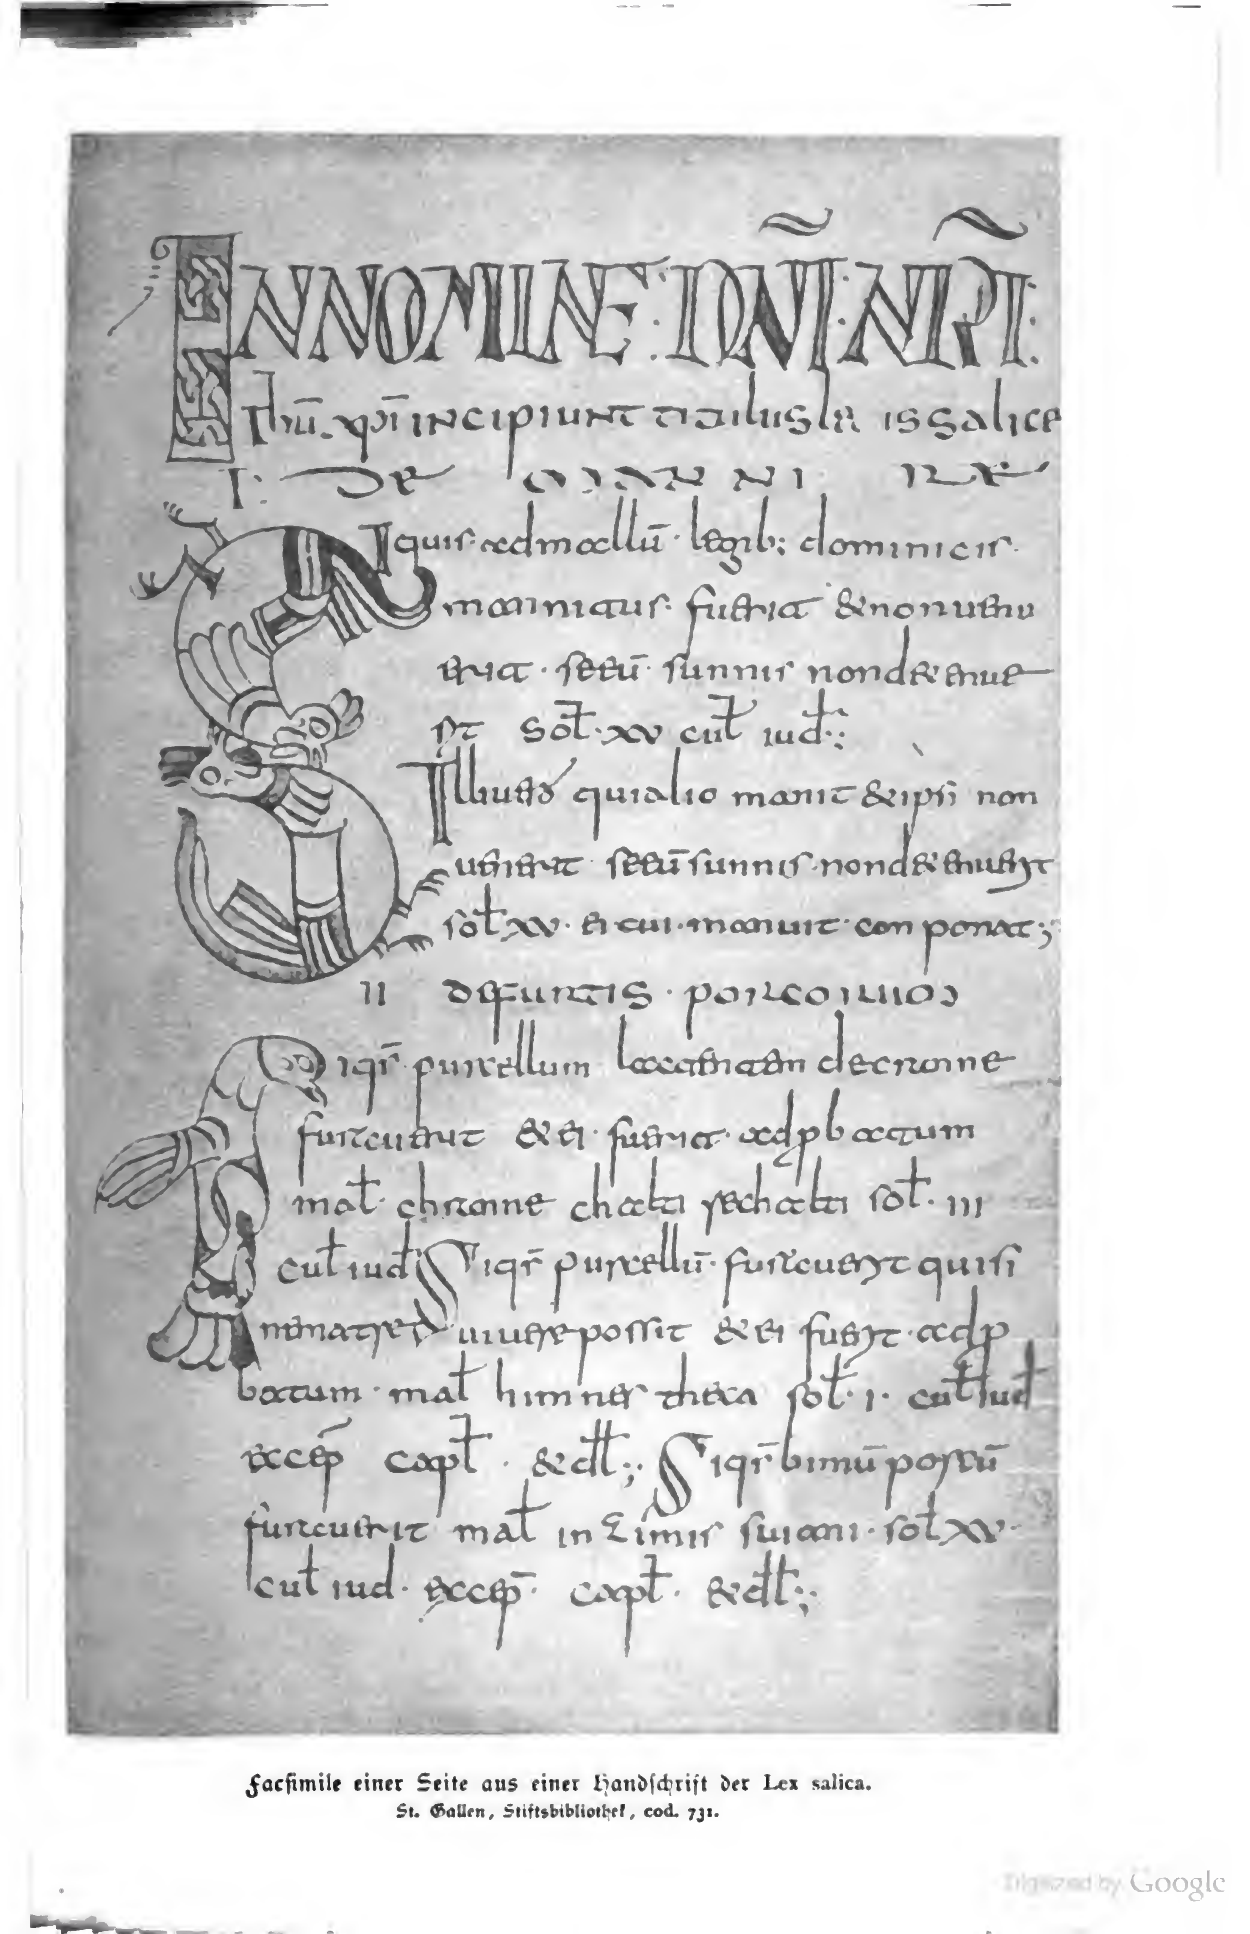 IN NOMINE DNI NRI
ihu xpi incipiunt titulus legis salice
I: DE MANNIRE
Siquis ad mallū legib; dominicis
mannitus fuerit & non uene
erit secū sunnis non deenue
rit sol xv cul iud:;
Ille uero qui alio manit & ipsi non
uenerit secū sunnis non deenuerit
sol xv ei cui manuit con ponat;
II DE FURTIS PORCORUM
Siqr purcellum lactantem de cranne
furcuerit & ei fuerit adpbatum
mal chranne chalti rechalti sol III
cul iud Siqr purcellū furcuerit qui si
ne matre uiuere possit & ei fuerit adp
batum mal himner theca sol I cul iud
excep capl & dl:; Siqr bimū porcū
furcuerit mal in zimis suiani sol xv
cul iud excep capl & dl:;
Facsimile einer Seite aus einer Handschrift der Lex salica.
St. Gallen, Stiftsbibliothek, cod. 731.
Digitized by Google